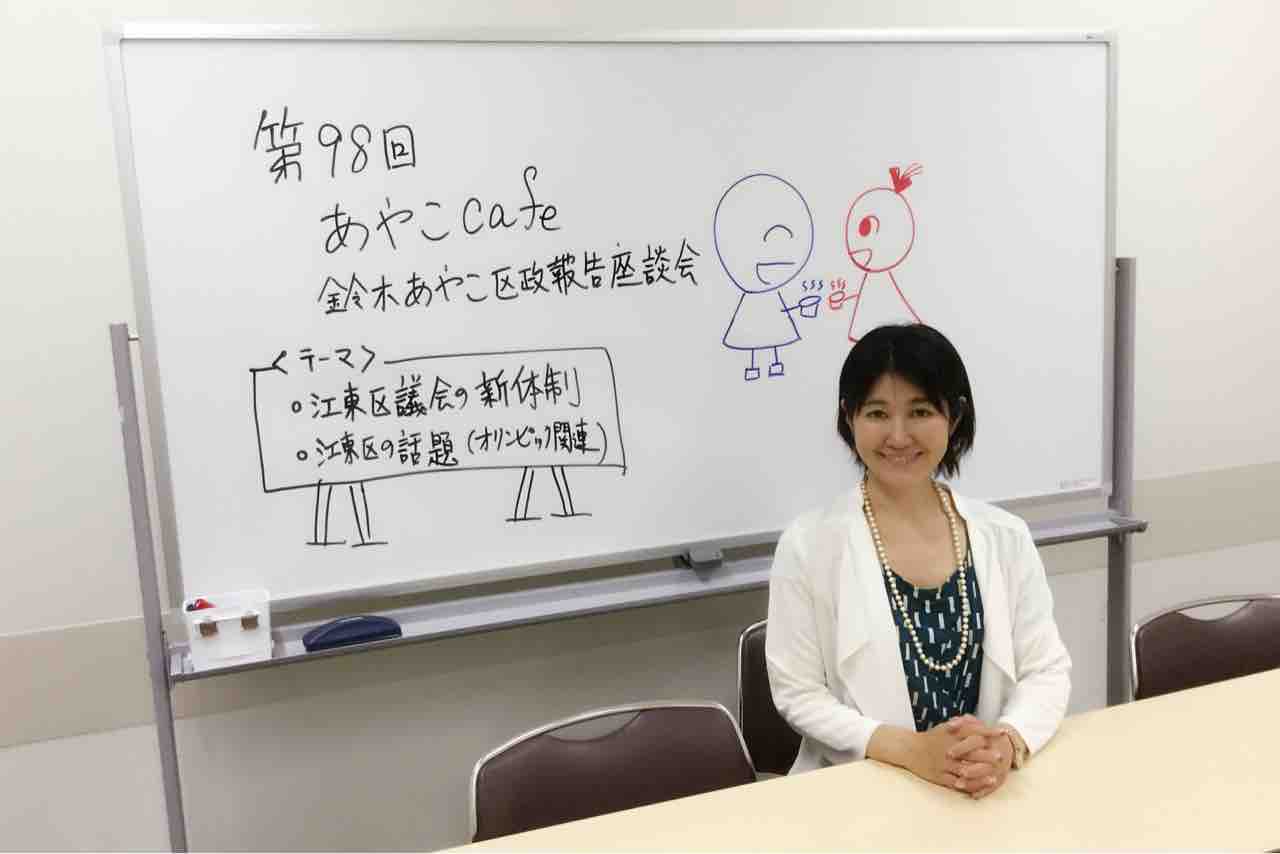 第98回
あやこcafe
鈴木あやこ区政報告座談会
＜テーマ＞
○江東区議会の新体制
○江東区の話題(オリンピック関連)